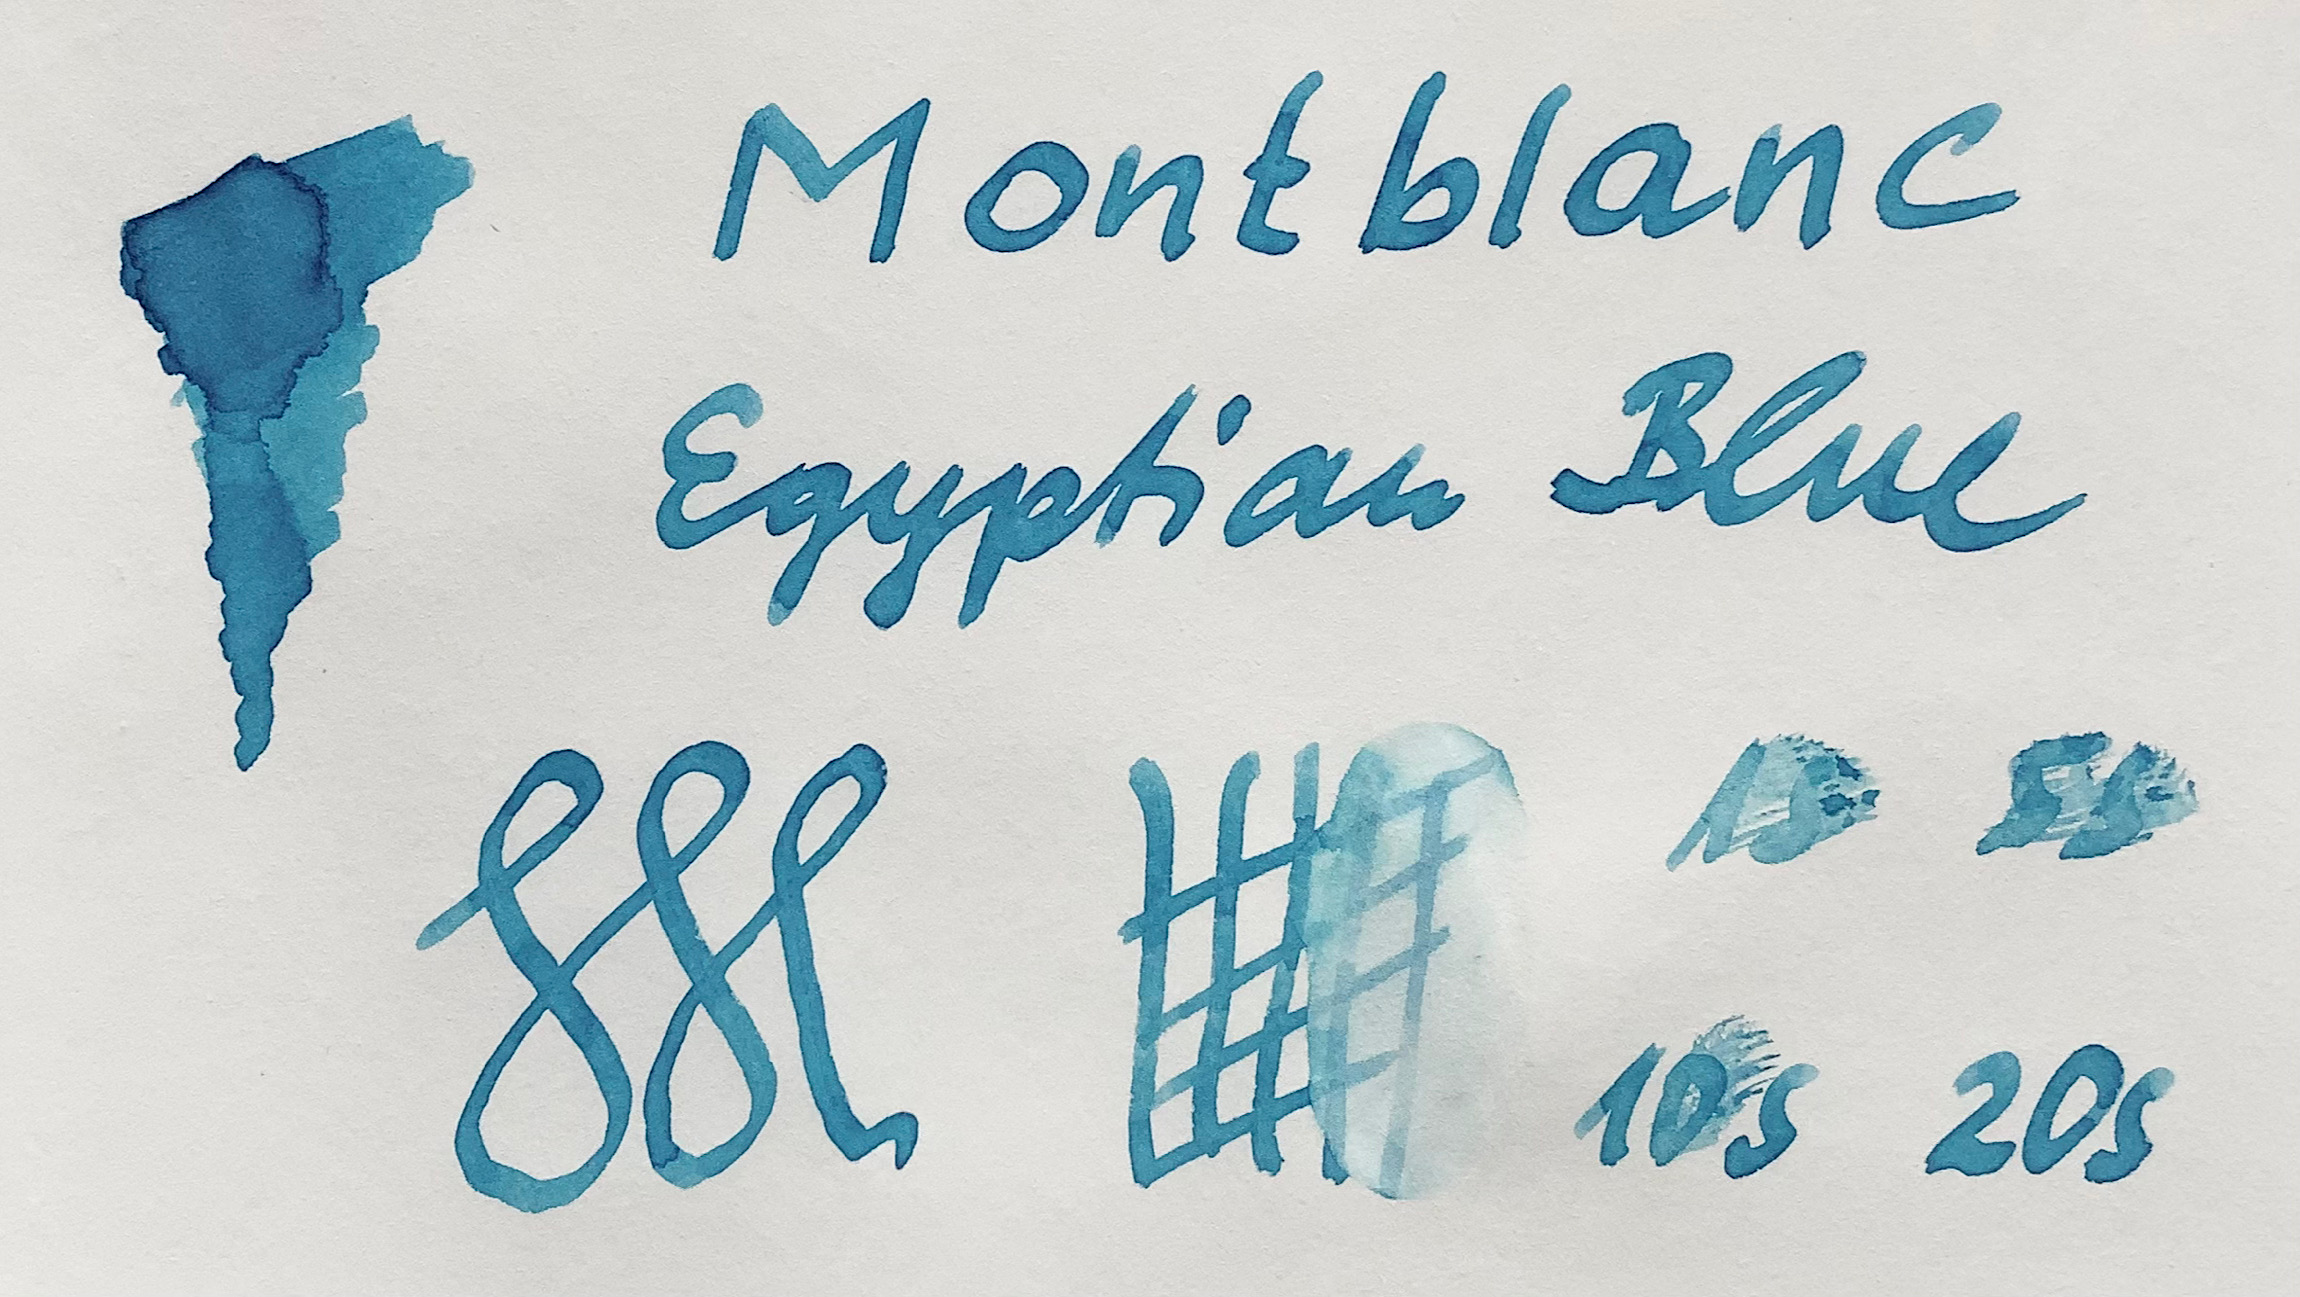 Montblanc
Egyptian Blue
1s 5s
10s 20s